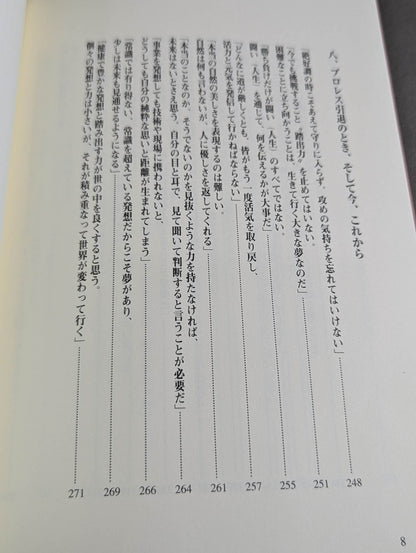 八、プロレス引退のとき、そして今、これから
「絶好調の時こそあえて守りに入らず、攻めの気持ちを忘れてはいけない」 248
「今でも挑戦すること、“踏出力”を止めてはいない。
困難なことに立ち向かうことは、生きて行く大きな夢なのだ」 251
「勝ち負けだけが闘い“人生”のすべてではない。
闘い“人生”を通じて、何を伝えるかが大事だ」 255
「どんなに道が厳しくとも、皆がもう一度活気を取り戻し、
活力と元気を発信して行かねばならない」 257
「本当の自然の美しさを表現するのは難しい。
自然は何も言わないが、人に優しさを返してくれる」 261
「本当のことなのか、そうでないのかを見抜くような力を持たなければ、
未来はないとさえ思う。自分の目と耳で、見て聞いて判断すると言うことが必要だ」 264
「事業を発想しても技術や現場に携われないと、
どうしても自分の純粋な思いと距離が生まれてしまう」 266
「常識では有り得ない、常識を超えている発想だからこそ夢があり、
少しは未来も見通せるようになる」 269
「健康で豊かな発想と踏み出す力が世の中を良くすると思う。
個々の発想と力は小さいが、それが積み重なって世界が変わって行く」 271
8